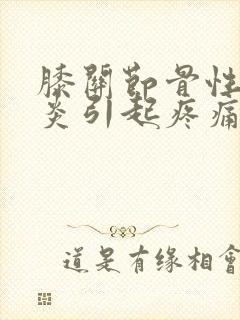 膝關節骨性
炎引起疼痛
道是有缘相會